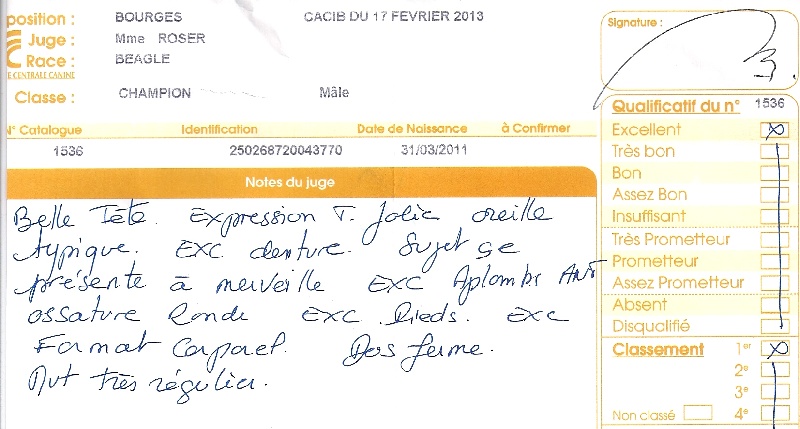 position : BOURGES CACIB DU 17 FEVRIER 2013
Juge : Mme ROSER
Race : BEAGLE
E CENTRALE CANINE
Classe : CHAMPION Mâle
Signature :
Qualificatif du n° 1536
N° Catalogue Identification Date de Naissance à Confirmer
1536 250268720043770 31/03/2011
Notes du juge
Belle Tête. Expression T. Jolie oreille
typique. EXC denture. Sujet se
présente à merveille EXC Aplombs ANT
ossature Ronde EXC Pieds. EXC
Format Corporel. Dos ferme.
Mvt très régulier.
Excellent
Très bon
Bon
Assez Bon
Insuffisant
Très Prometteur
Prometteur
Assez Prometteur
Absent
Disqualifié
Classement 1er
2e
3e
Non classé 4e